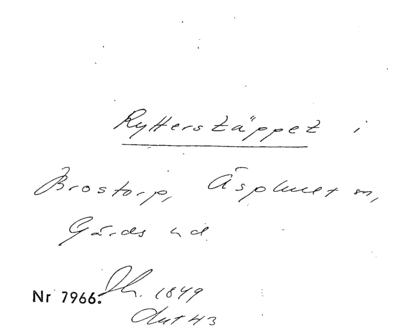 Ryttersläppet i
Brostorp, Äsphult sn,
Gärds hd
Nr 7966. Jh. 1849
Aut 43